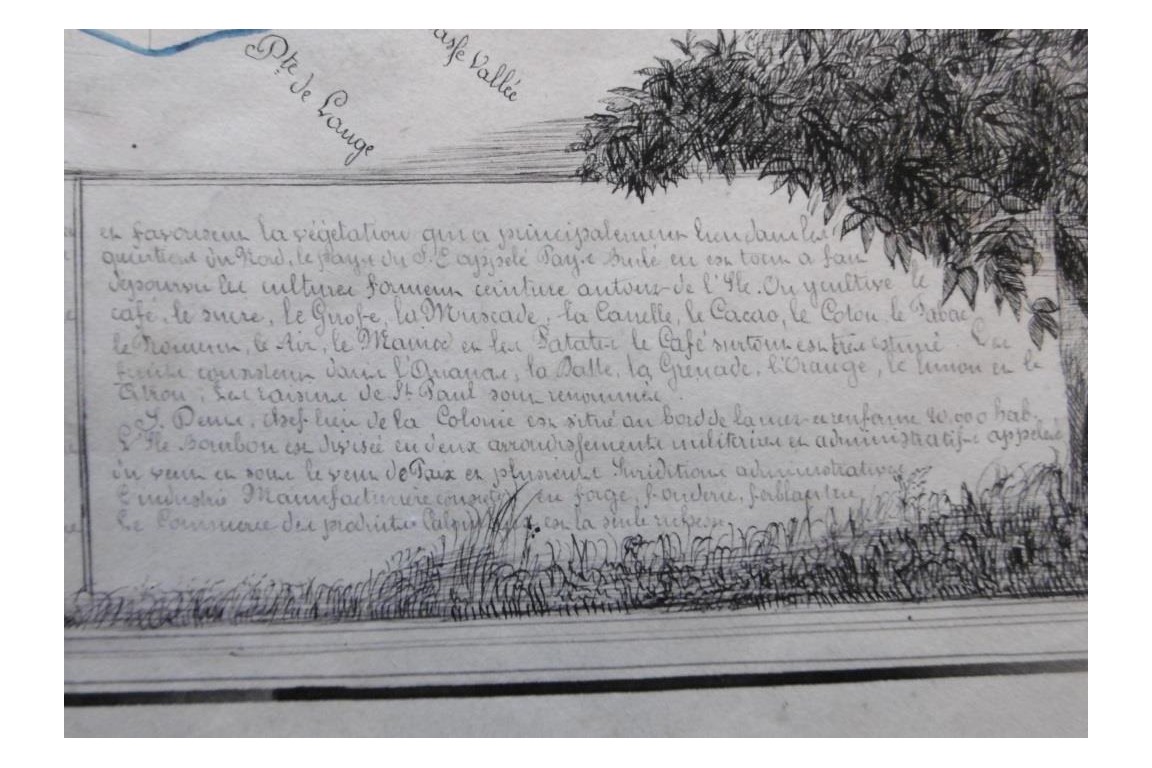 Pte de Lange
Basse Vallée
en favorisent la végétation qui a principalement lieu dans les
quartiers du Nord, le pays du S.E appelé Pays Brûlé en est tout a fait
depourvu les cultures forment ceinture autour de l'Ile. On y cultive le
café, le sucre, le Girofe, la Muscade, la Canelle, le Cacao, le Coton le Tabac
le Froment, le Riz, le Manioc et les Patates le Café surtout est très estimé Les
fruits consistent dans l'Ananas, la Datte, la Grenade, l'Orange, le Limon et le
Citron, Les raisins de St Paul sont renommés.
S. Denis, chef lieu de la Colonie est situé au bord de la mer et renferme 10.000 hab.
L'Ile Bourbon est divisé en deux arrondissements militaires et administratifs appelés
du vent et sous le vent de Paix et plusieurs Juriditions administratives
L'industrie Manufacturière consiste en forge, fonderie, ferblanterie
Le Commerce des produits est la seule richesse.